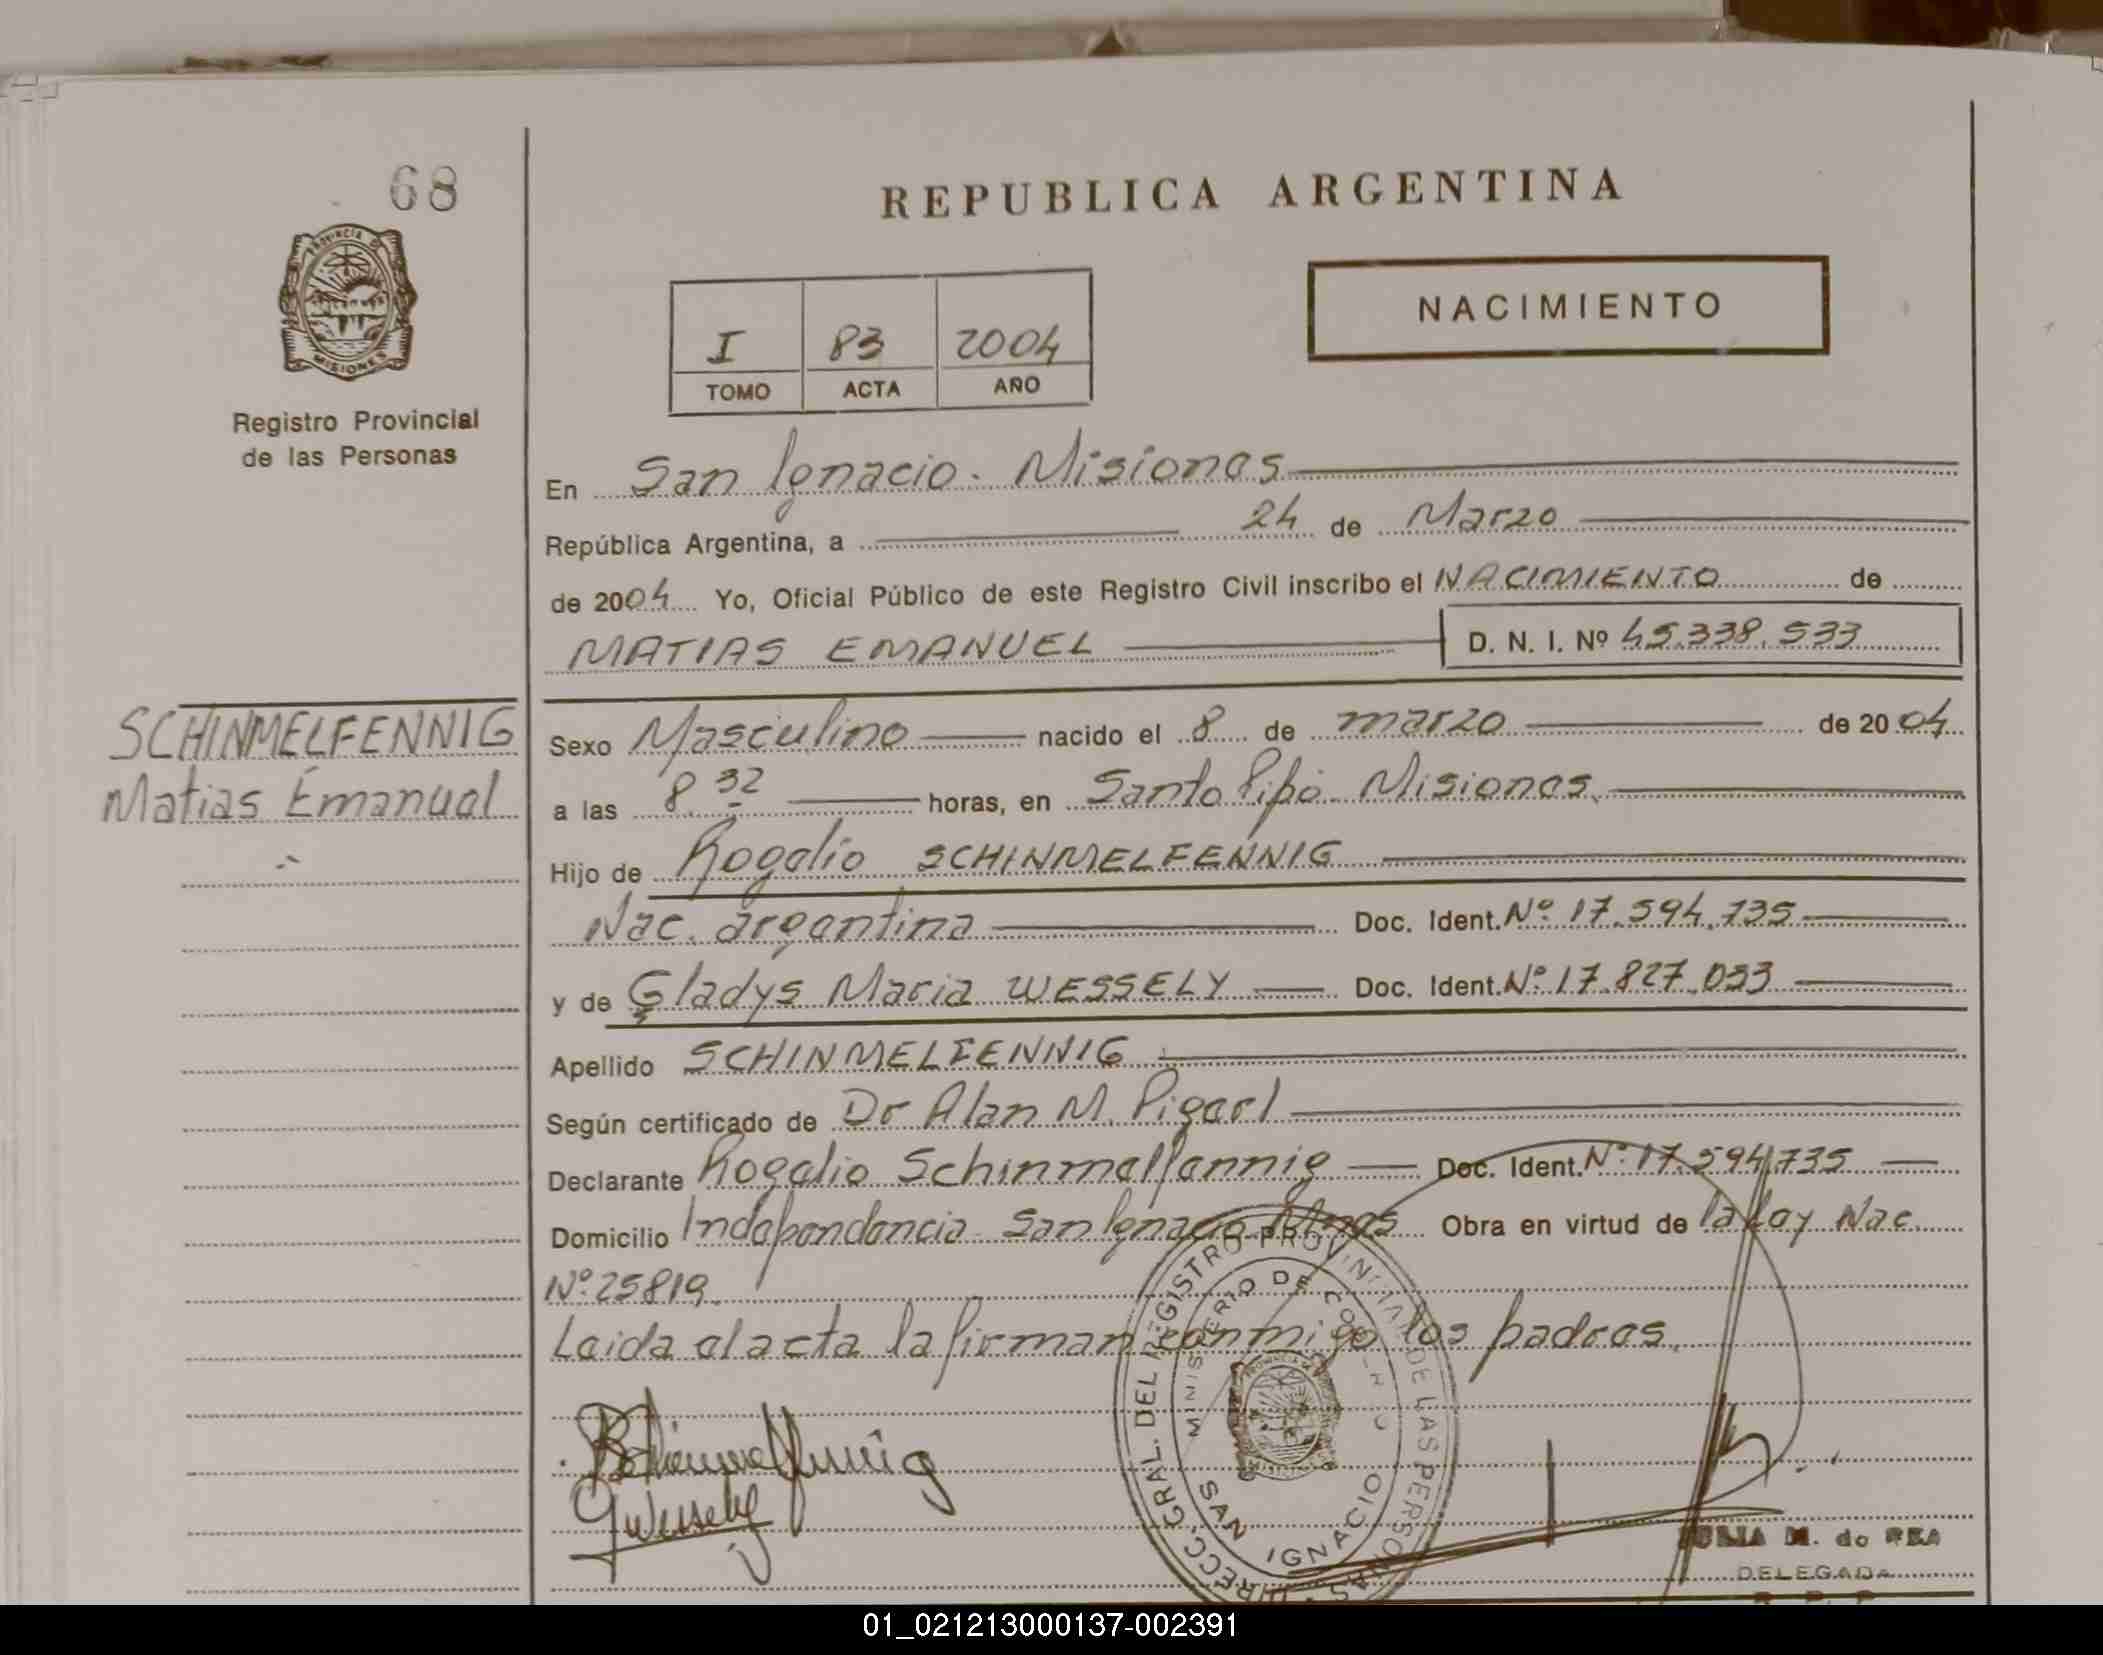 68
REPUBLICA ARGENTINA
NACIMIENTO
I 83 2004
TOMO ACTA AÑO
PROVINCIA DE
MISIONES
Registro Provincial
de las Personas
En San Ignacio - Misiones
República Argentina, a 24 de Marzo
de 2004 Yo, Oficial Público de este Registro Civil inscribo el NACIMIENTO de
MATIAS EMANUEL D. N. I. Nº 45.338.533
SCHINMELFENNIG
Matias Emanuel
Sexo Masculino nacido el 8 de marzo de 2004
a las 8 32 horas, en Santo Pipó Misiones
Hijo de Rogelio SCHINMELFENNIG
Nac. argentina Doc. Ident. Nº 17.594.735
y de Gladys Maria WESSELY Doc. Ident. Nº 17.827.033
Apellido SCHINMELFENNIG
Según certificado de Dr Alan M.
Declarante Rogelio Schinmelfennig Doc. Ident. Nº 17.594.735
Domicilio Independencia San Ignacio Mnes Obra en virtud de la Ley Nac.
Nº 25819
Leida el acta la firman conmigo los padres.
DIRECC. GRAL. DEL REGISTRO PROVINCIAL DE LAS PERSONAS
MINISTERIO DE GOBIERNO
SAN IGNACIO
Schinmelfennig
GWessely
JULIA M. de REA
DELEGADA
R. P. P.
01_021213000137-002391